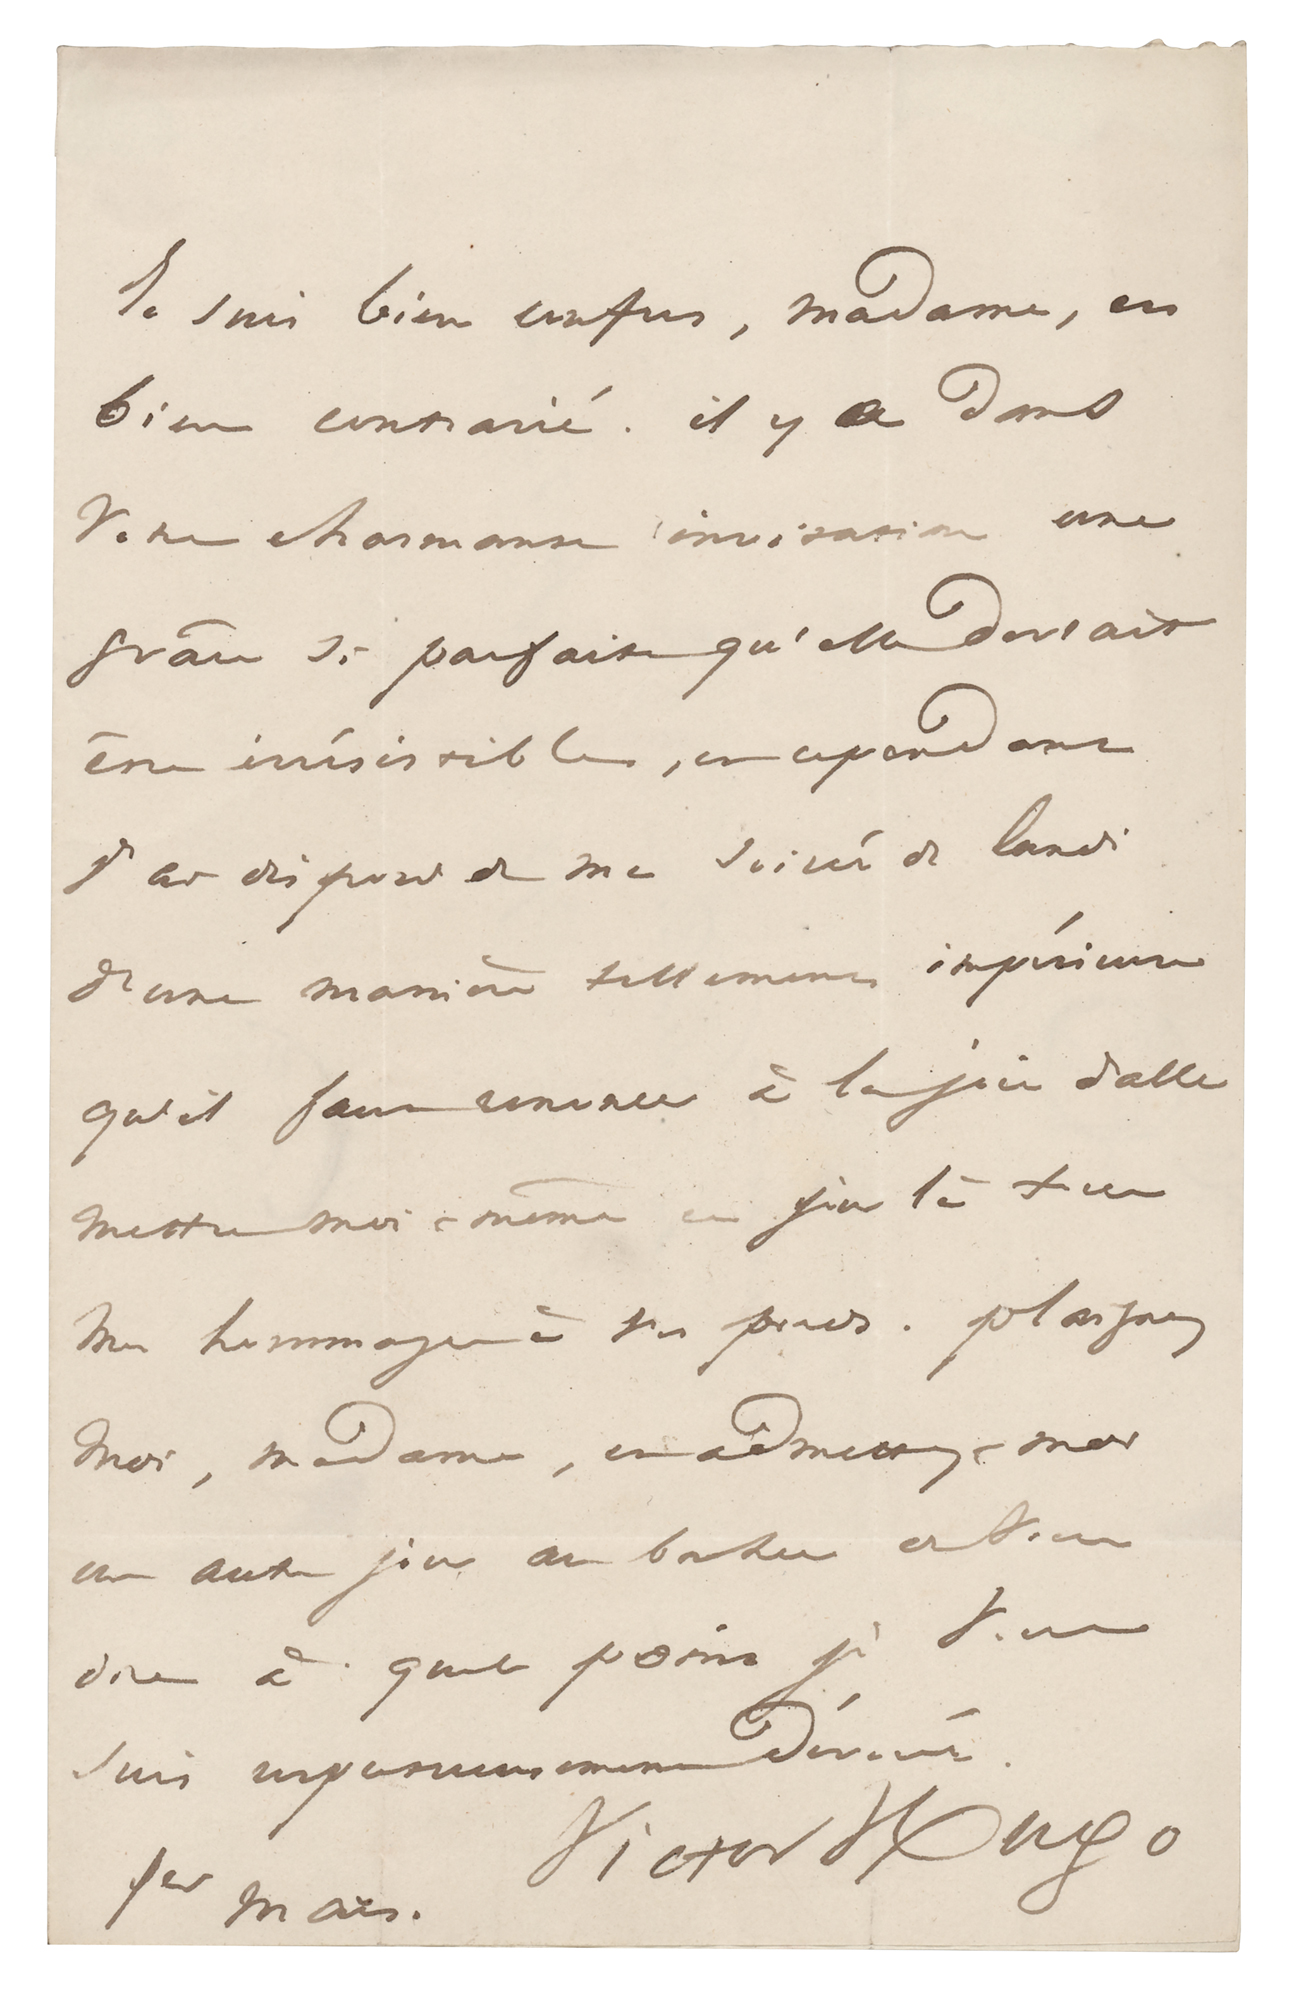 Je suis bien confus, madame, et
bien contrarié. il y a dans
votre charmante invitation une
grâce si parfaite qu'elle devrait
être irrésistible, et cependant
on a disposé de ma soirée de lundi
d'une manière tellement impérieuse
qu'il faut renoncer à la joie d'aller
mettre moi-même ce jour là tous
mes hommages à vos pieds. plaignez
moi, madame, et admettez-moi
un autre jour au bonheur de vous
dire à quel point je vous
suis respectueusement dévoué.
Victor Hugo
1er mars.